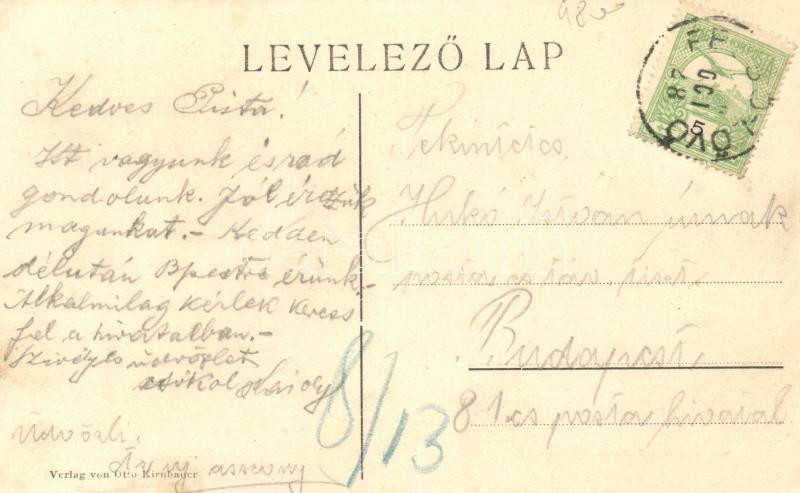 LEVELEZŐ LAP
Kedves Pista!
Itt vagyunk és rád
gondolunk. Jól érezzük
magunkat.- Kedden
délután Bpestre érünk.-
Alkalmilag kérlek keress
fel a hivatalban.-
Szívélyes üdvözlet
csókol Károly
Üdvözli,
asszony
Verlag von Otto Kirnbauer
Tekintetes
Hirkó István úrnak
posta és táv. tiszt
Budapest
81-es posta hivatal
8/13